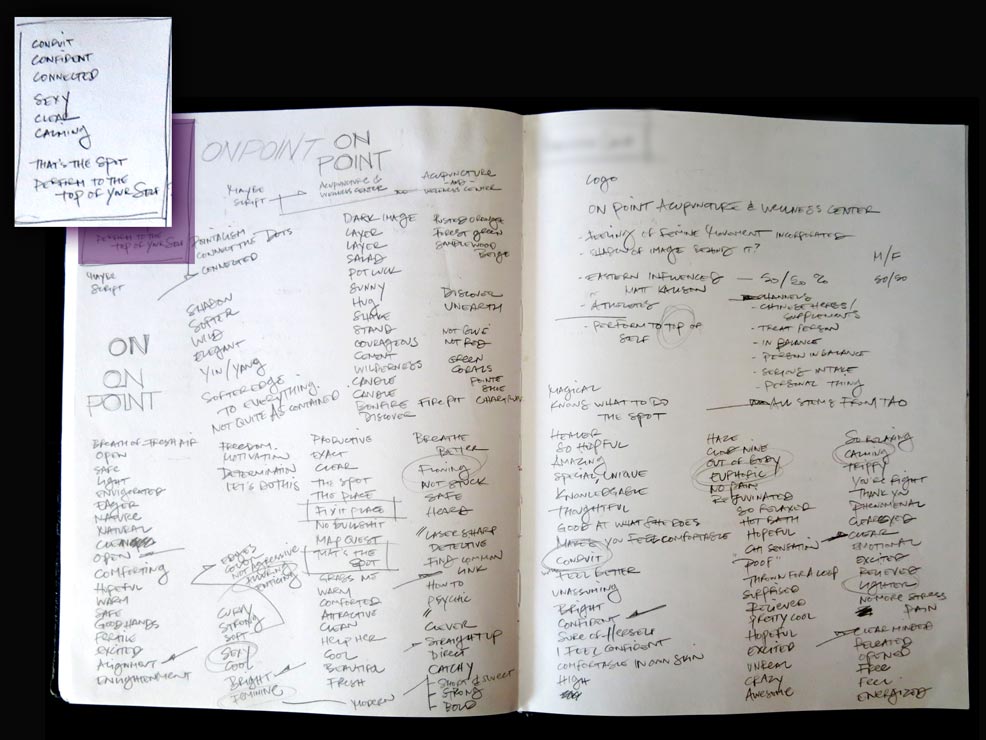 CONDUIT
CONFIDENT
CONNECTED
SEXY
CLEAR
CALMING
THAT'S THE SPOT
PERFORM TO THE
TOP OF YOUR SELF
ONPOINT
ON
POINT
MAYBE
SCRIPT
ACUPUNCTURE &
WELLNESS CENTER
ACUPUNCTURE
- AND -
WELLNESS CENTER
PERFORM TO THE
TOP OF YOUR SELF
POINTALISM
CONNECT THE DOTS
CONNECTED
MAYBE
SCRIPT
SHADOW
SOFTER
WILD
ELEGANT
YIN/YANG
SOFTER EDGE
TO EVERYTHING.
NOT QUITE AS CONTAINED
ON
ON
POINT
DARK IMAGE
LAYER
LAYER
SALAD
POTLUCK
SUNNY
HUG
SHAKE
STAND
COURAGEOUS
COMBAT
WILDERNESS
CANDLE
CANDLE
BONFIRE
DISCOVER
FOREST GREEN
SANDLEWOOD
BEIGE
DISCOVER
UNEARTH
NOT BLUE
NOT RED
GREEN
CORALS
POINTE
SHOE
FIRE PIT
BREATH OF FRESH AIR
OPEN
SAFE
LIGHT
ENVIGORATED
EAGER
NATURE
NATURAL
OPEN
COMFORTING
HOPEFUL
WARM
SAFE
GOOD HANDS
FERTILE
EXCITED
ALIGNMENT
ENLIGHTENMENT
FREEDOM.
MOTIVATION
DETERMINATION
LET'S DO THIS
EDGES
COULD
NOT AGRESSIVE
ALLURING
ENTICING
CURVY
STRONG
SOFT
SEXY
COOL
BRIGHT
FEMININE
MODERN
PRODUCTIVE
EXACT
CLEAR
THE SPOT
THE PLACE
FIX IT PLACE
NO BULLSHIT
MAP QUEST
THAT'S THE
SPOT
GRABS ME
WARM
COMFORTED
ATTRACTIVE
CLEAN
HELP HER
COOL
BEAUTIFUL
FRESH
BREATHE
BETTER
FLOWING
NOT STUCK
SAFE
HEARD
"LASER SHARP
DETECTIVE
FIND COMMON
LINK
HOW TO
PSYCHIC
"
CLEVER
STRAIGHT UP
DIRECT
CATCHY
SHORT & SWEET
STRONG
BOLD
LOGO
ON POINT ACUPUNCTURE & WELLNESS CENTER
- FEELING OF FEMINE MOVEMENT INCORPORATED
- SHADOW OF IMAGE BEHIND IT?
- EASTERN INFLUENCES — 50/50 %
M/F
50/50
- ATHLETES
- PERFORM TO TOP OF
SELF
CHANNELS
- CHINESE HERBS/
SUPPLEMENTS
- TREAT PERSON
- IN BALANCE
- PERSON IN BALANCE
- SERIOUS INTAKE
- PERSONAL THING
ALL STEMS FROM TAO
MAGICAL
KNOWS WHAT TO DO
THE SPOT
HEALER
SO HOPEFUL
AMAZING
SPECIAL, UNIQUE
KNOWLEDGABLE
THOUGHTFUL
GOOD AT WHAT SHE DOES
MAKES YOU FEEL COMFORTABLE
CONDUIT
FEEL BETTER
UNASSUMING
BRIGHT
CONFIDENT
SURE OF HERSELF
I FEEL CONFIDENT
COMFORTABLE IN OWN SKIN
HIGH
HAZE
CLOUD NINE
OUT OF BODY
EUPHORIC
NO PAIN
REJUVINATED
SO RELAXED
HOT BATH
HOPEFUL
CHI SENSATION
"POOF"
THROWN FOR A LOOP
SURPRISED
RELIEVED
PRETTY COOL
HOPEFUL
EXCITED
UNREAL
CRAZY
AWESOME
SO RELAXING
CALMING
TRIPPY
YOU'RE RIGHT
THANK YOU
PHENOMENAL
CLEAR EYED
CLEAR
EMOTIONAL
EXCITED
RELIEVED
LIGHTER
NO MORE STRESS
PAIN
CLEAR MINDED
RELEASED
OPENED
FREE
FEEL
ENERGIZED